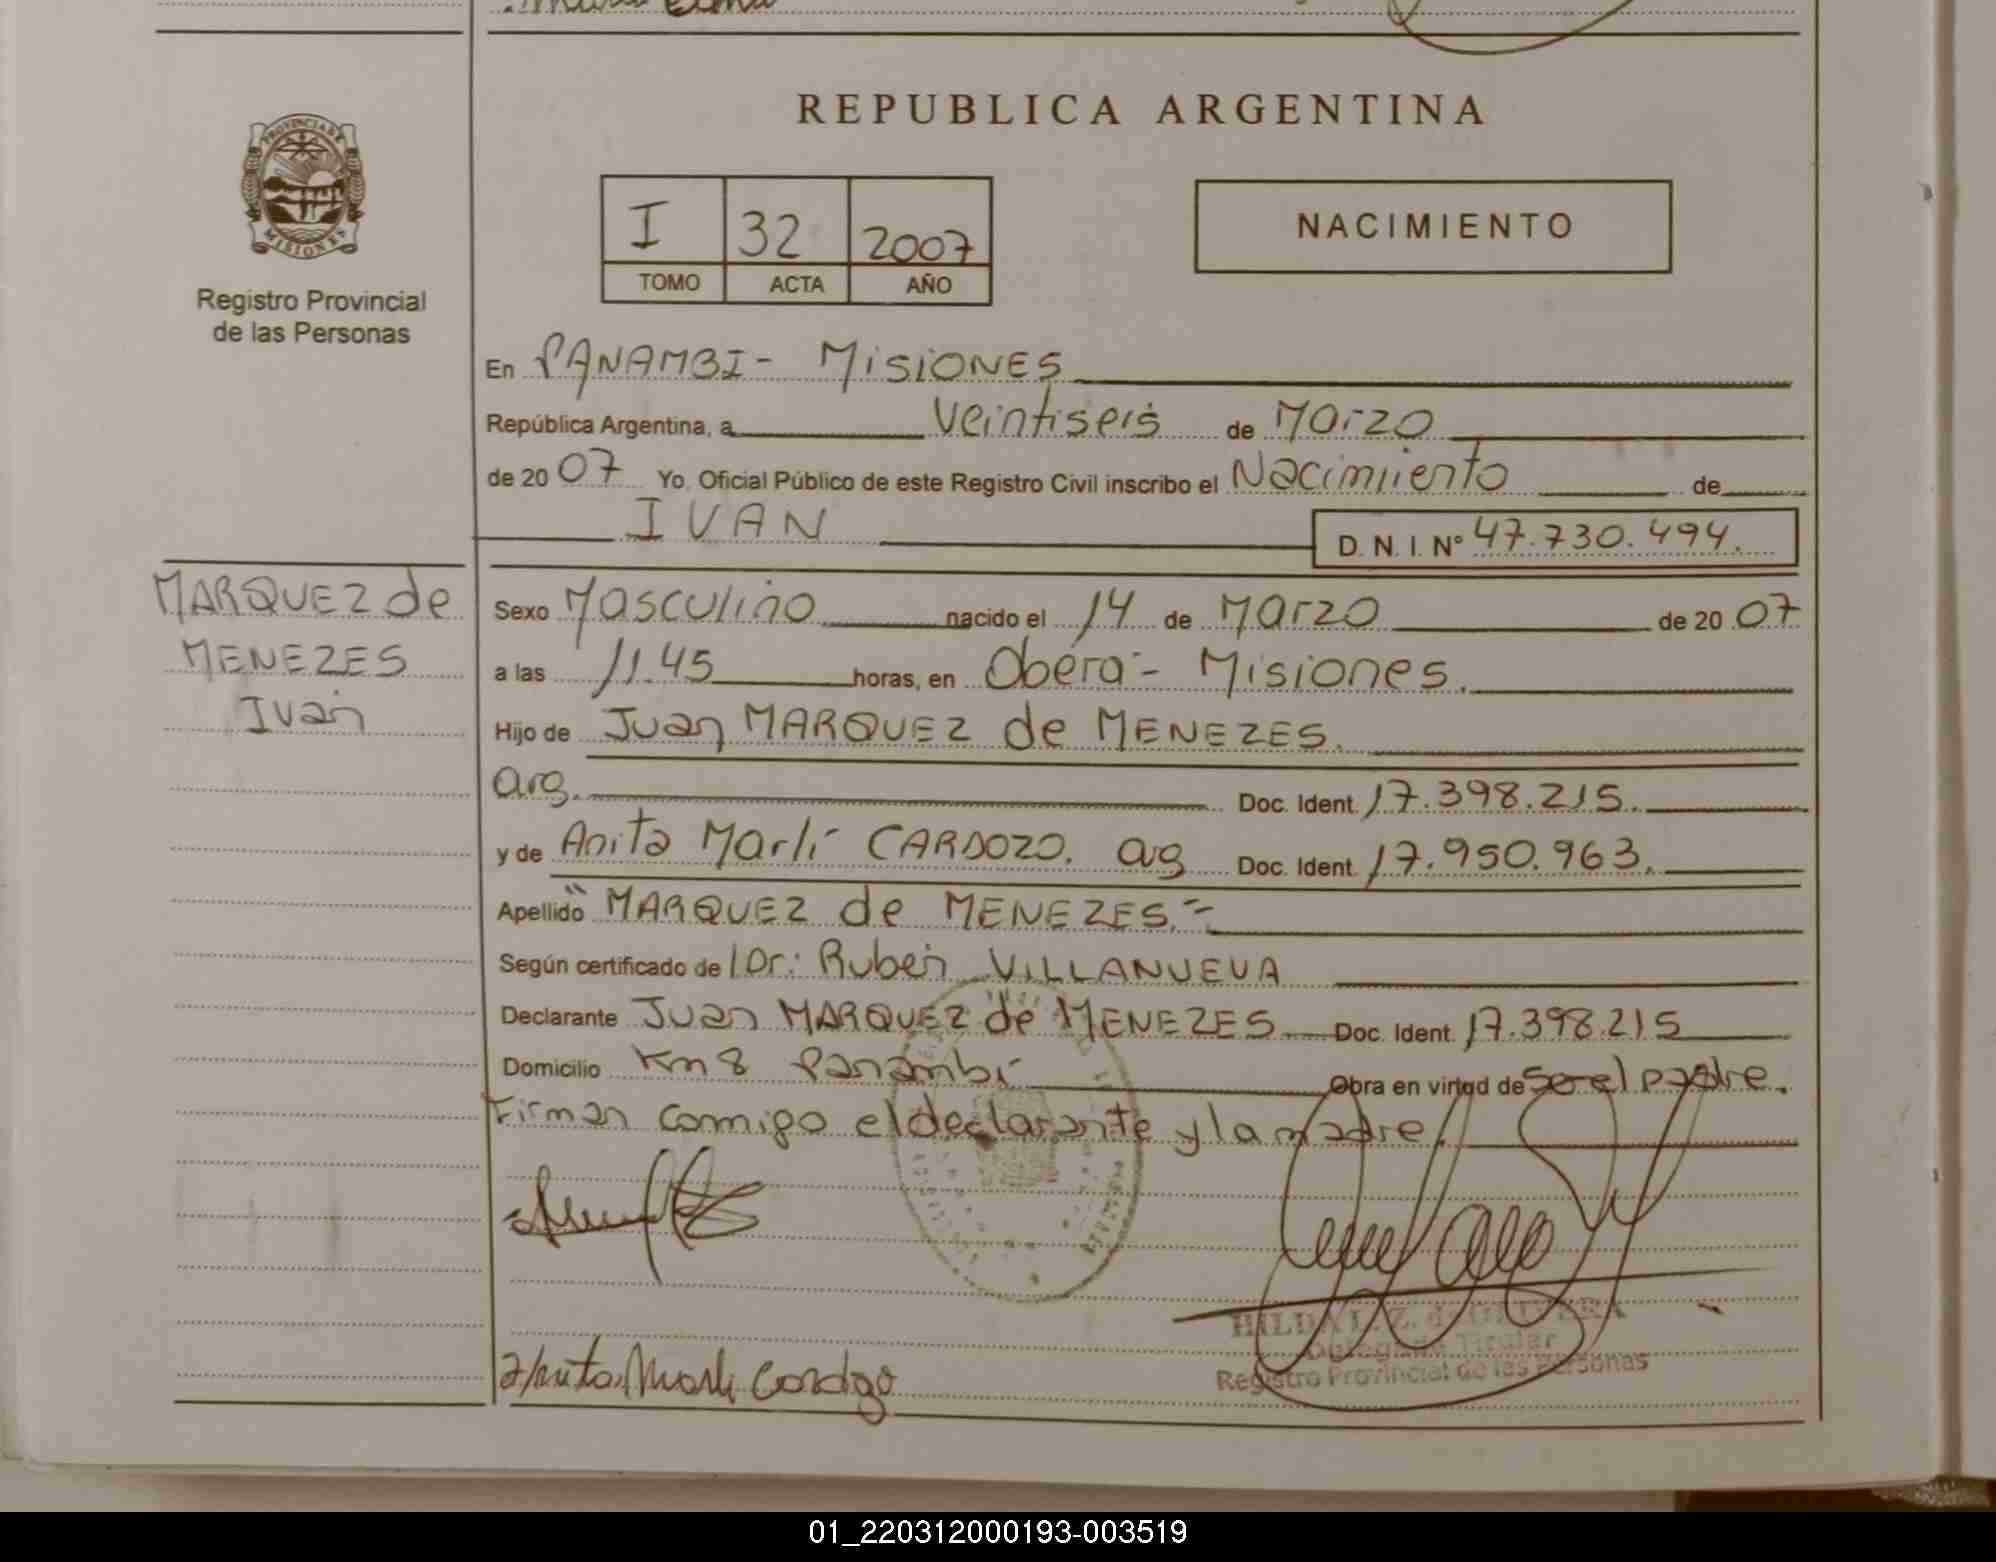 REPUBLICA ARGENTINA
PROVINCIA DE
MISIONES
Registro Provincial
de las Personas
I 32 2007
TOMO ACTA AÑO
NACIMIENTO
En PANAMBI - MISIONES
República Argentina, a veintiseis de Marzo
de 20 07 Yo, Oficial Público de este Registro Civil inscribo el Nacimiento de
IVAN D. N. I. Nº 47.730.494.
MARQUEZ de
MENEZES
Iván
Sexo Masculino nacido el 14 de Marzo de 20 07
a las 11.45 horas, en Oberá - Misiones.
Hijo de Juan MARQUEZ de MENEZES.
arg. Doc. Ident. 17.398.215.
y de Anita Marlí CARDOZO. arg Doc. Ident. 17.950.963.
Apellido "MARQUEZ de MENEZES.=
Según certificado de Dr: Rubén VILLANUEVA
Declarante Juan MARQUEZ de MENEZES Doc. Ident. 17.398.215
Domicilio Km 8 Panambí Obra en virtud de ser el padre.
Firman conmigo el declarante y la madre.
Anita Marli Cardozo
HILDA
Delegada Titular
Registro Provincial de las Personas
01_220312000193-003519